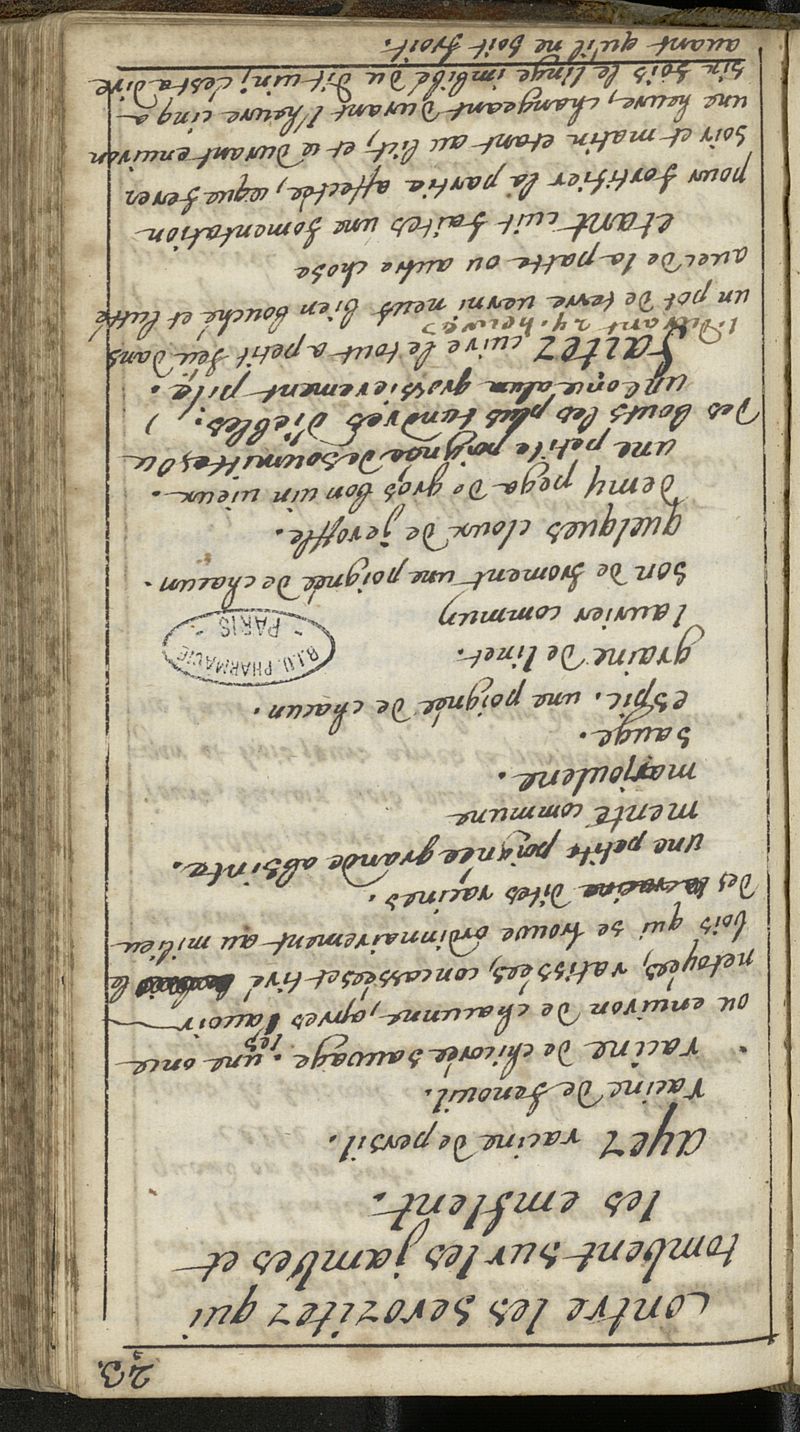 23.
Contre les serozitez qui
tombent sur les jambes et
les emflent.
ayez racine de persil.
racine de fenouil.
racine de chicorée sauvage. une once
ou environ de chacunne, apres les avoir
netoyées, ratissées, concassées et tiré le
bois qui se trouve ordinnairement au milieu
des dites racines.
une petite poignée grande absinte.
mente commune
marjoulene.
sauge.
espic. une poignée de chacun.
graine de linet.
B.I.U. PHARMACIE
- PARIS -
laurier commun
son de froment une poignée de chacun.
quelques cloux de jeroffle.
demy pega de gros bon uin uieux.
une petite poignée de soumittes ou
des bouts les plus tendres d'iebles.)
une once alun grossierement pilé.
Faites cuire le tout a petit feu dans
durant 24. heures
un pot de terre uerni neuf bien bouché et lutté
auec de la patte ou autre chose
etant cuit faites une fomentation
pour fortifier la partie affectée, ce que ferez
soir et matin etant au lit, et ce durant enuiron
une heure, changeant durant l'heure cinq a
six fois le linge imbibé du dit uin; c'est a dire
auant qu'il ne soit froit.